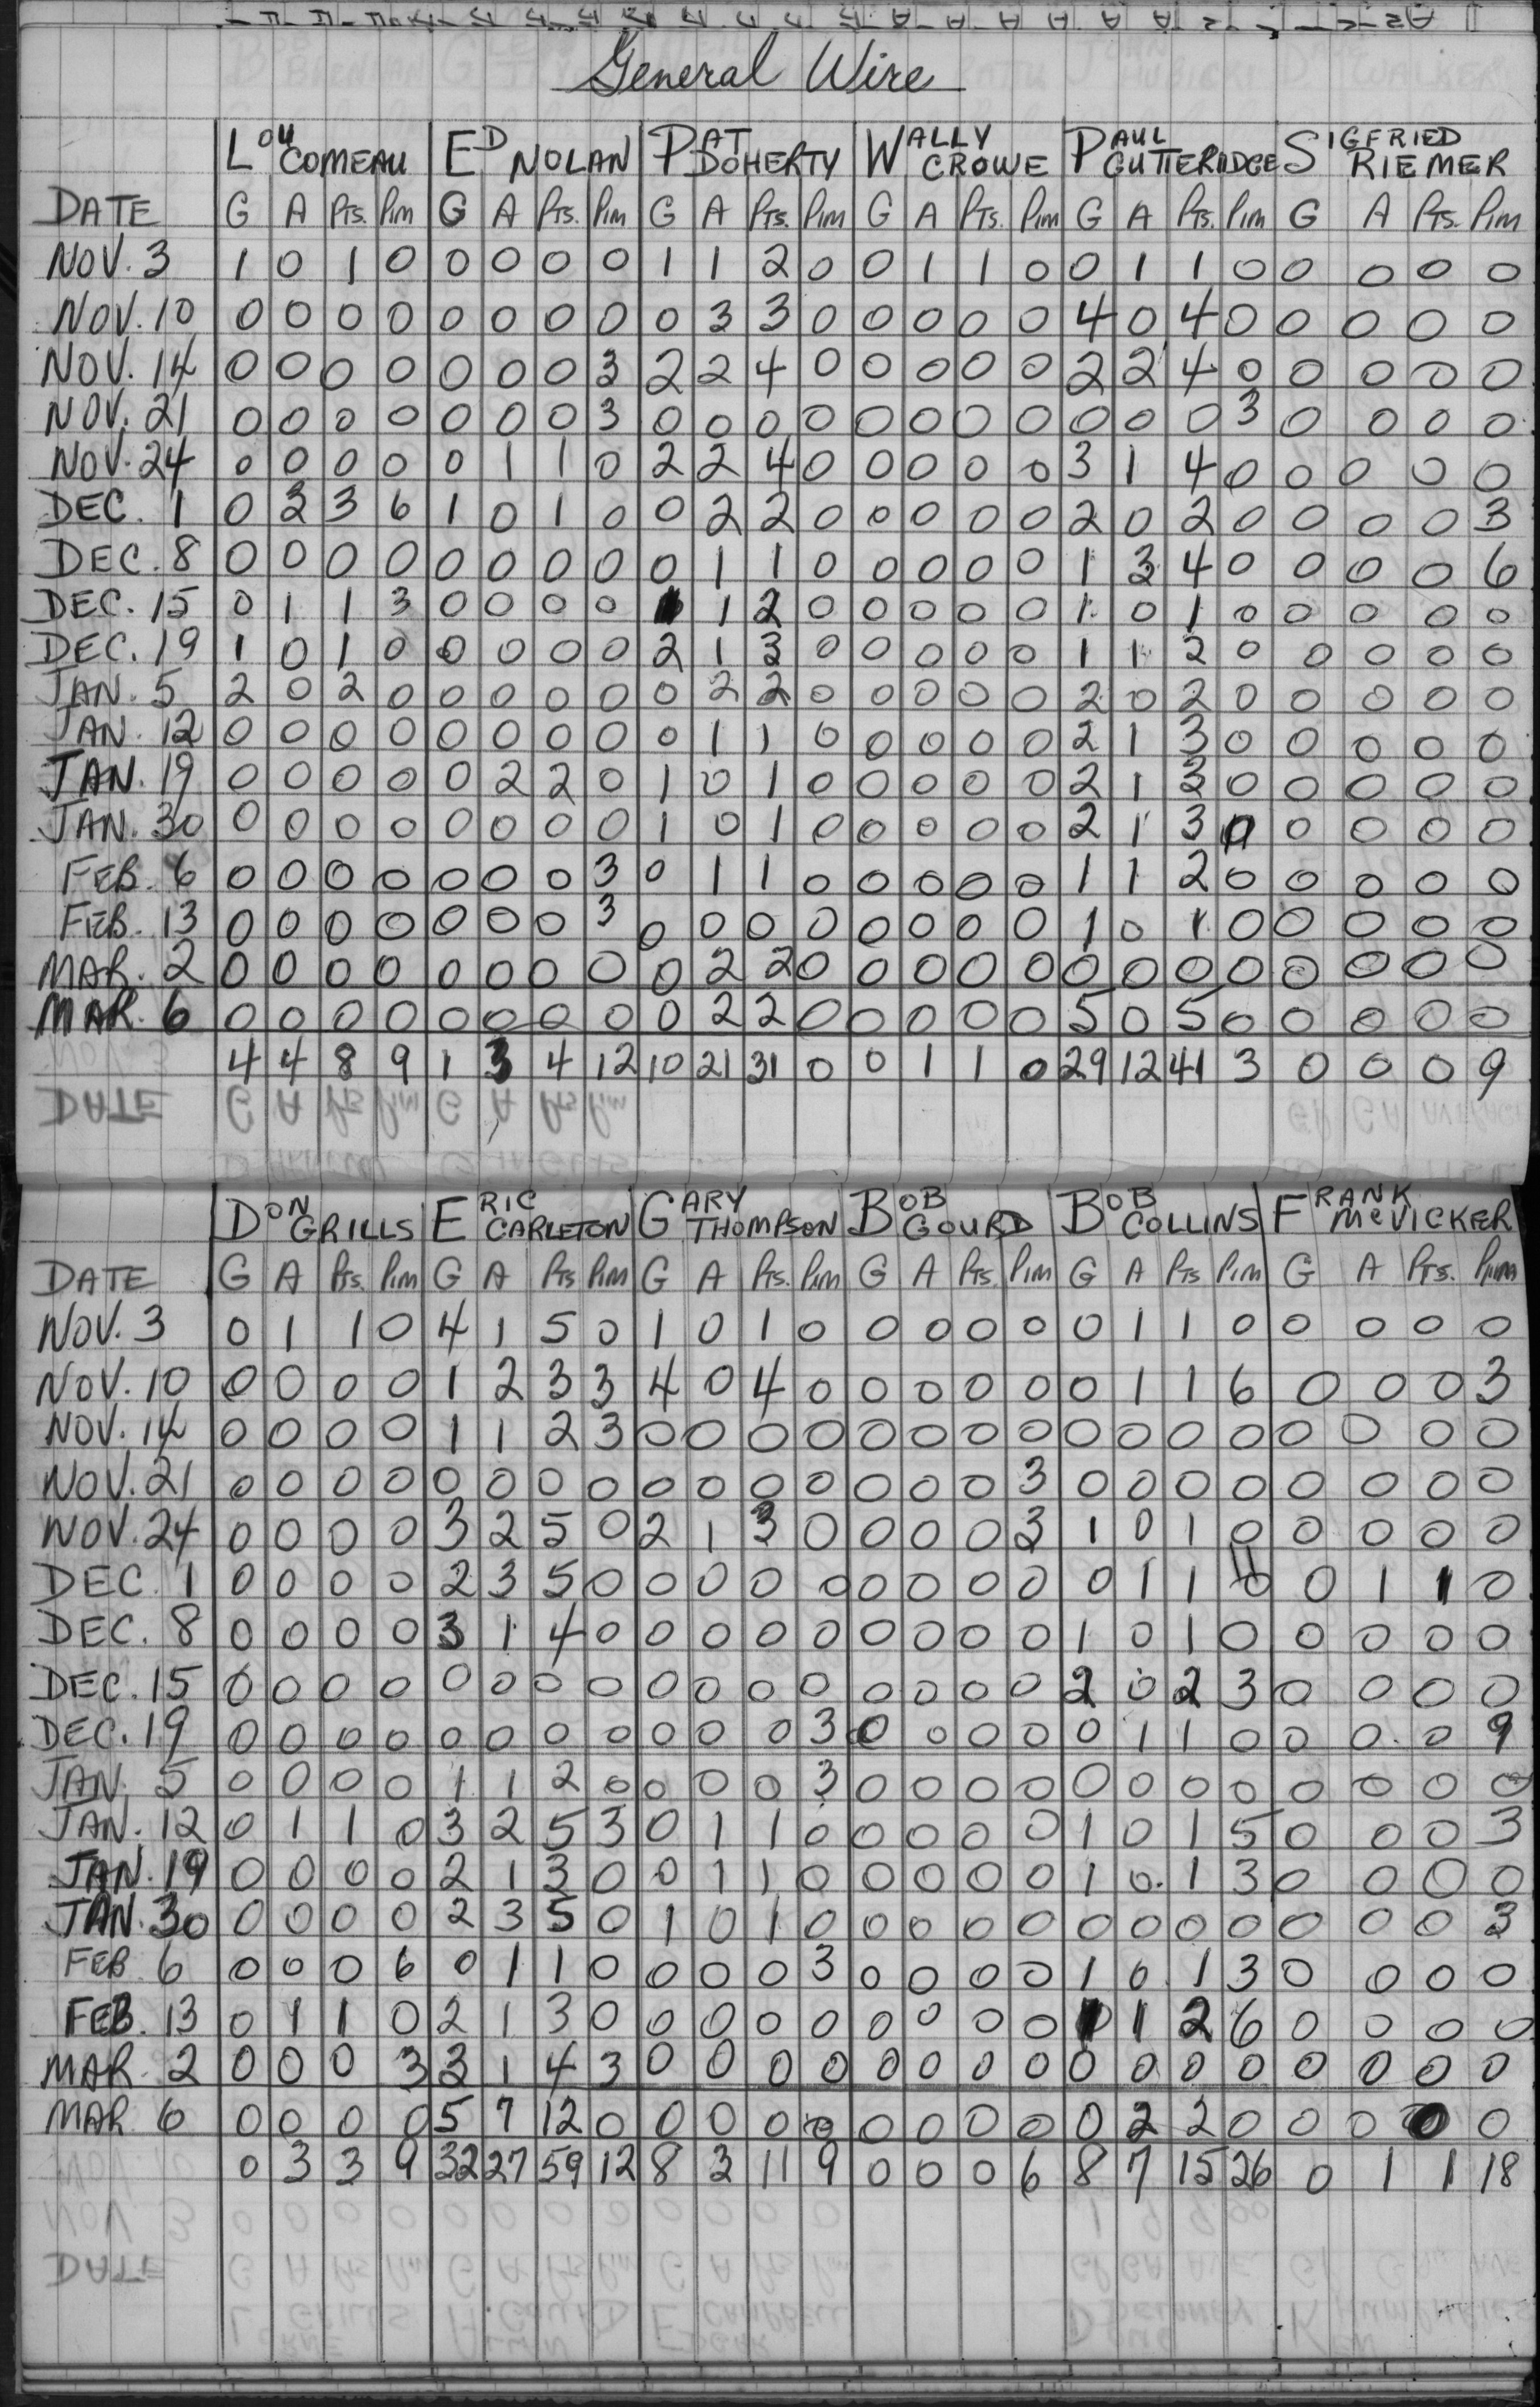 General Wire
LOU COMEAU ED NOLAN PAT DOHERTY WALLY CROWE PAUL GUTTERIDGE SIGFRIED RIEMER
DATE G A Pts. Pim G A Pts. Pim G A Pts. Pim G A Pts. Pim G A Pts. Pim G A Pts. Pim
NOV. 3 1 0 1 0 0 0 0 0 1 1 2 0 0 1 1 0 0 1 1 0 0 0 0 0
NOV. 10 0 0 0 0 0 0 0 0 0 3 3 0 0 0 0 0 4 0 4 0 0 0 0 0
NOV. 14 0 0 0 0 0 0 0 3 2 2 4 0 0 0 0 0 2 2 4 0 0 0 0 0
NOV. 21 0 0 0 0 0 0 0 3 0 0 0 0 0 0 0 0 0 0 0 3 0 0 0 0
NOV. 24 0 0 0 0 0 1 1 0 2 2 4 0 0 0 0 0 3 1 4 0 0 0 0 0
DEC. 1 0 3 3 6 1 0 1 0 0 2 2 0 0 0 0 0 2 0 2 0 0 0 0 3
DEC. 8 0 0 0 0 0 0 0 0 0 1 1 0 0 0 0 0 1 3 4 0 0 0 0 6
DEC. 15 0 1 1 3 0 0 0 0 1 1 2 0 0 0 0 0 1 0 1 0 0 0 0 0
DEC. 19 1 0 1 0 0 0 0 0 2 1 3 0 0 0 0 0 1 1 2 0 0 0 0 0
JAN. 5 2 0 2 0 0 0 0 0 0 2 2 0 0 0 0 0 2 0 2 0 0 0 0 0
JAN. 12 0 0 0 0 0 0 0 0 0 1 1 0 0 0 0 0 2 1 3 0 0 0 0 0
JAN. 19 0 0 0 0 0 2 2 0 1 0 1 0 0 0 0 0 2 1 3 0 0 0 0 0
JAN. 30 0 0 0 0 0 0 0 0 1 0 1 0 0 0 0 0 2 1 3 0 0 0 0 0
FEB. 6 0 0 0 0 0 0 0 3 0 1 1 0 0 0 0 0 1 1 2 0 0 0 0 0
FEB. 13 0 0 0 0 0 0 0 3 0 0 0 0 0 0 0 0 1 0 1 0 0 0 0 0
MAR. 2 0 0 0 0 0 0 0 0 0 2 2 0 0 0 0 0 0 0 0 0 0 0 0 0
MAR. 6 0 0 0 0 0 0 0 0 0 2 2 0 0 0 0 0 5 0 5 0 0 0 0 0
4 4 8 9 1 3 4 12 10 21 31 0 0 1 1 0 29 12 41 3 0 0 0 9
DON GRILLS ERIC CARLETON GARY THOMPSON BOB GOURD BOB COLLINS FRANK McVICKER
DATE G A Pts. Pim G A Pts Pim G A Pts. Pim G A Pts. Pim G A Pts Pim G A Pts. Pim
NOV. 3 0 1 1 0 4 1 5 0 1 0 1 0 0 0 0 0 0 1 1 0 0 0 0 0
NOV. 10 0 0 0 0 1 2 3 3 4 0 4 0 0 0 0 0 0 1 1 6 0 0 0 3
NOV. 14 0 0 0 0 1 1 2 3 0 0 0 0 0 0 0 0 0 0 0 0 0 0 0 0
NOV. 21 0 0 0 0 0 0 0 0 0 0 0 0 0 0 0 3 0 0 0 0 0 0 0 0
NOV. 24 0 0 0 0 3 2 5 0 2 1 3 0 0 0 0 3 1 0 1 0 0 0 0 0
DEC. 1 0 0 0 0 2 3 5 0 0 0 0 0 0 0 0 0 0 1 1 0 0 1 1 0
DEC. 8 0 0 0 0 3 1 4 0 0 0 0 0 0 0 0 0 1 0 1 0 0 0 0 0
DEC. 15 0 0 0 0 0 0 0 0 0 0 0 0 0 0 0 0 2 0 2 3 0 0 0 0
DEC. 19 0 0 0 0 0 0 0 0 0 0 0 3 0 0 0 0 0 1 1 0 0 0 0 9
JAN. 5 0 0 0 0 1 1 2 0 0 0 0 3 0 0 0 0 0 0 0 0 0 0 0 0
JAN. 12 0 1 1 0 3 2 5 3 0 1 1 0 0 0 0 0 1 0 1 5 0 0 0 3
JAN. 19 0 0 0 0 2 1 3 0 0 1 1 0 0 0 0 0 1 0 1 3 0 0 0 0
JAN. 30 0 0 0 0 2 3 5 0 1 0 1 0 0 0 0 0 0 0 0 0 0 0 0 3
FEB. 6 0 0 0 6 0 1 1 0 0 0 0 3 0 0 0 0 1 0 1 3 0 0 0 0
FEB. 13 0 1 1 0 2 1 3 0 0 0 0 0 0 0 0 0 1 1 2 6 0 0 0 0
MAR. 2 0 0 0 3 3 1 4 3 0 0 0 0 0 0 0 0 0 0 0 0 0 0 0 0
MAR. 6 0 0 0 0 5 7 12 0 0 0 0 0 0 0 0 0 0 2 2 0 0 0 0 0
0 3 3 9 32 27 59 12 8 3 11 9 0 0 0 6 8 7 15 26 0 1 1 18